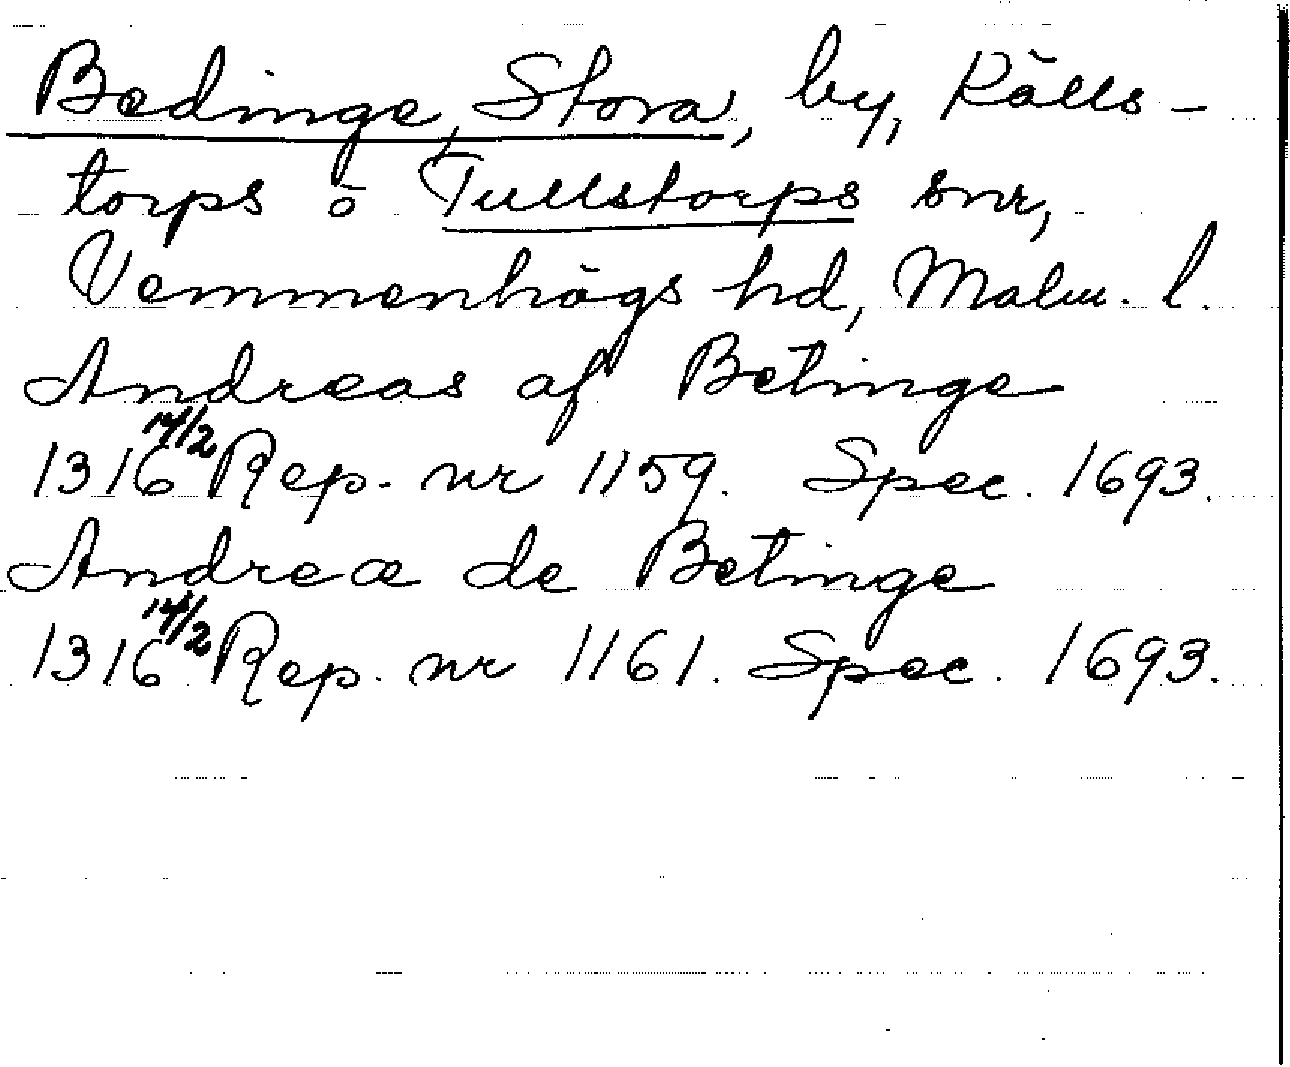 Bedinge, Stora, by, Källs-
torps o Tullstorps snr,
Vemmenhögs hd, Malm. l.
Andreas af Betinge
1316 14/2 Rep. nr 1159. Spec. 1693.
Andreæ de Betinge
1316 14/2 Rep. nr 1161. Spec. 1693.